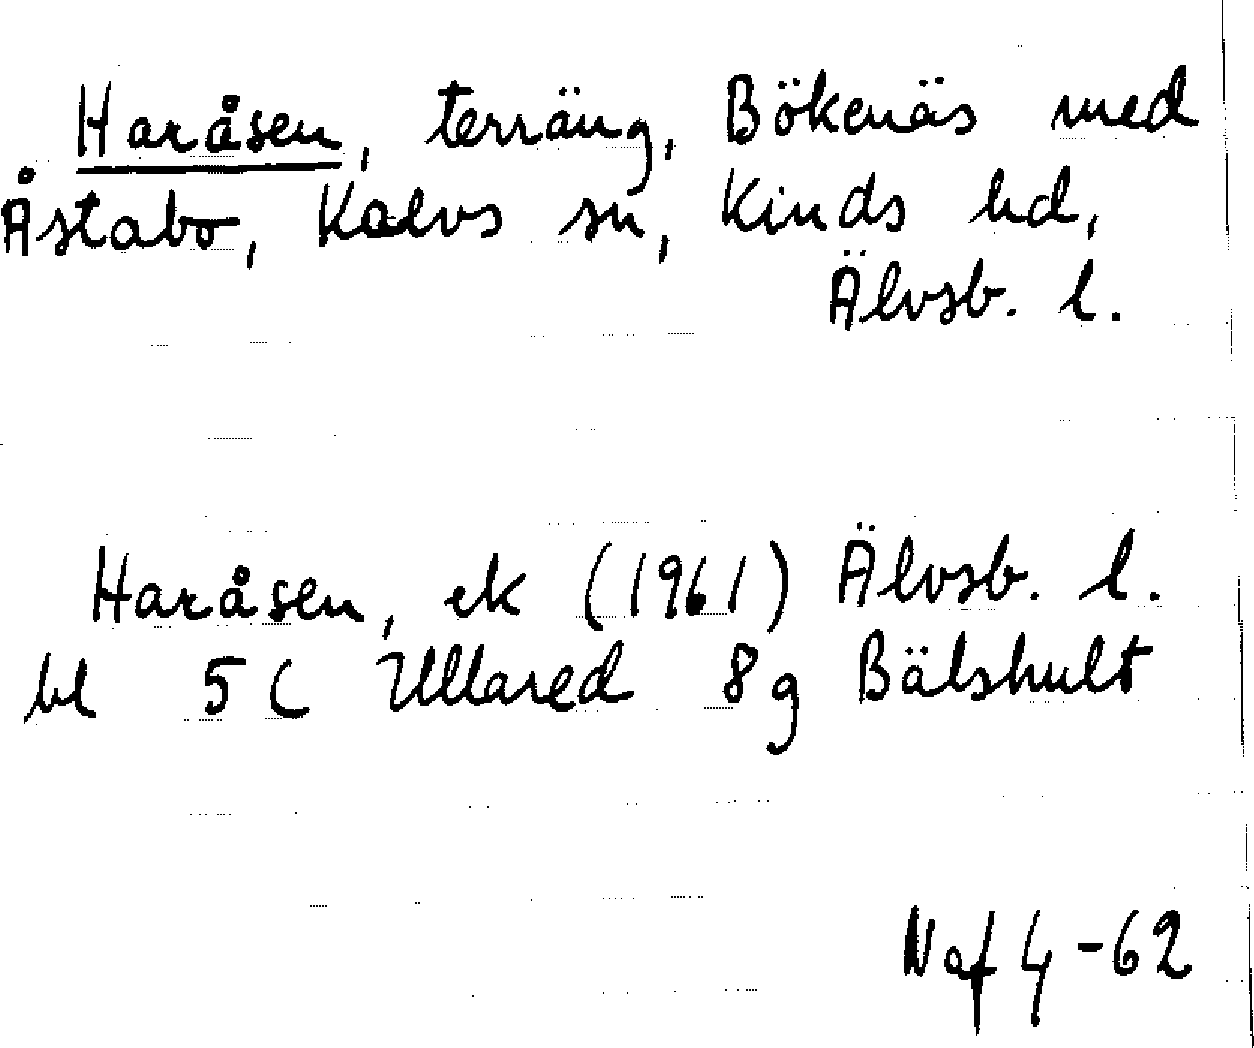 Haråsen, terräng, Bökenäs med
Åstabo, Kalvs sn, Kinds hd,
Älvsb. l.
Haråsen, ek (1961) Älvsb. l.
bl 5C Ullared 8g Bälshult
Naf 4-62